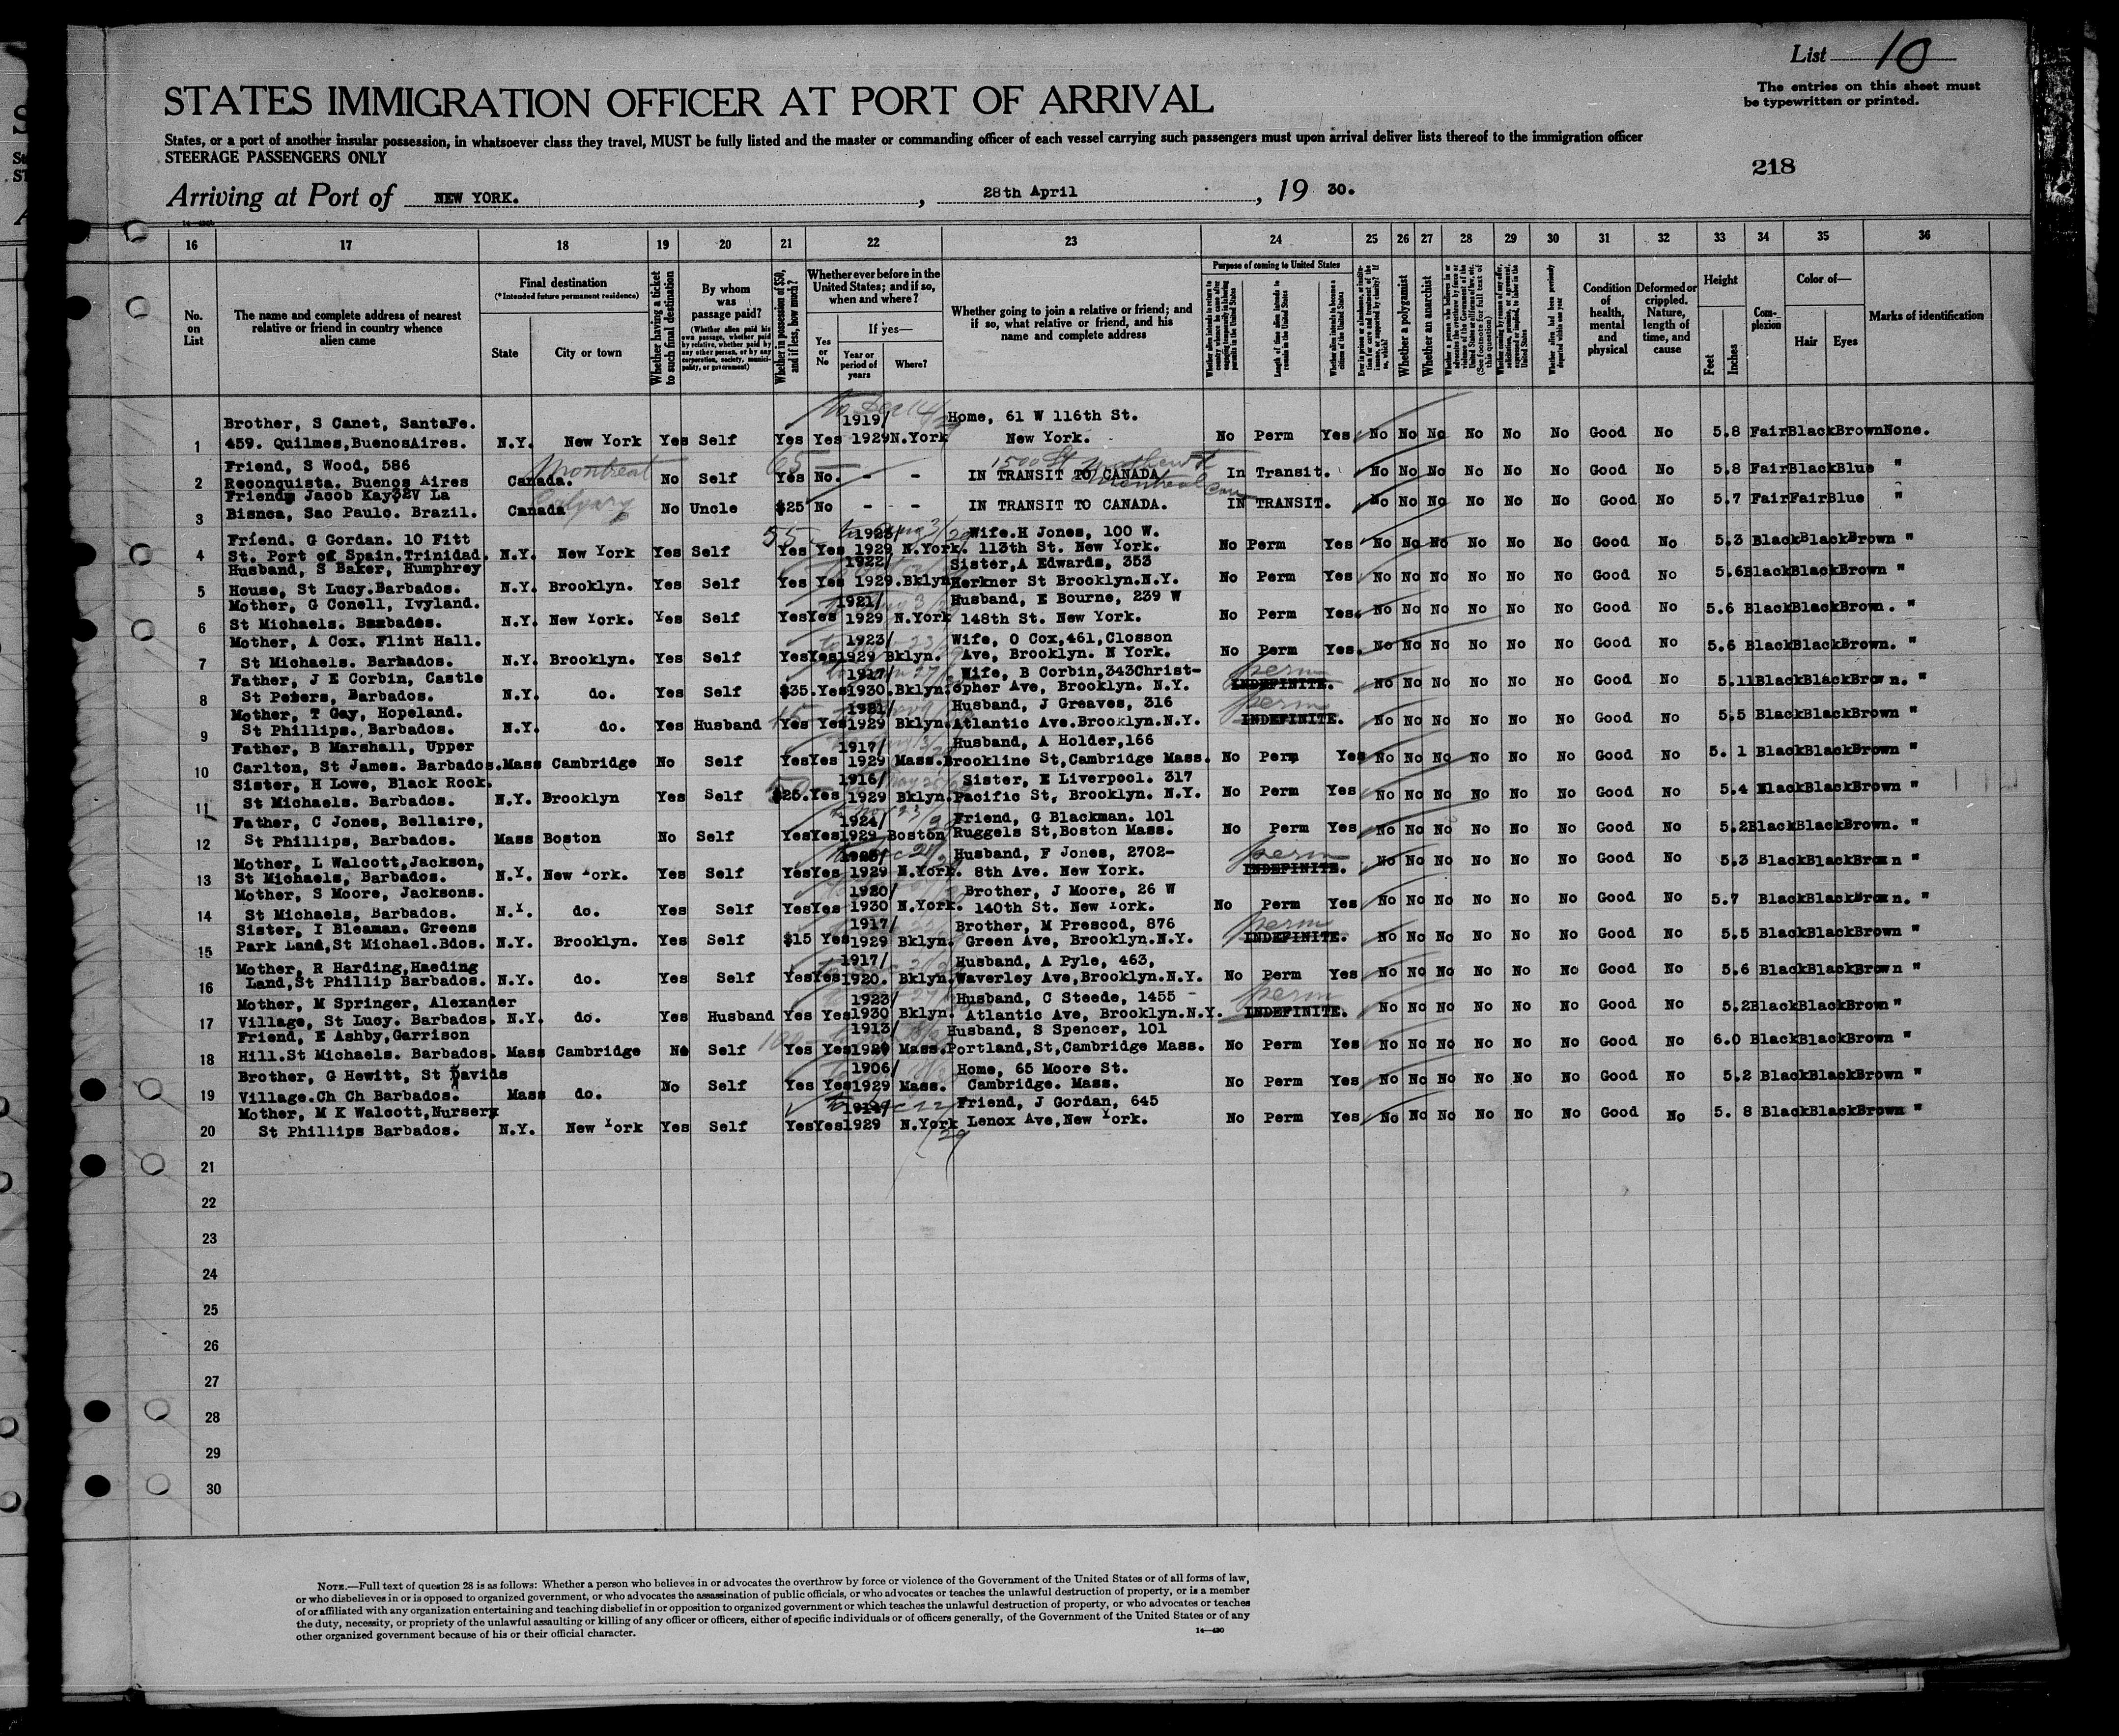 List 10
The entries on this sheet must
be typewritten or printed.
STATES IMMIGRATION OFFICER AT PORT OF ARRIVAL
States, or a port of another insular possession, in whatsoever class they travel, MUST be fully listed and the master or commanding officer of each vessel carrying such passengers must upon arrival deliver lists thereof to the immigration officer
STEERAGE PASSENGERS ONLY
218
Arriving at Port of NEW YORK. , 28th April , 19 30.
16 17 18 19 20 21 22 23 24 25 26 27 28 29 30 31 32 33 34 35 36
No.
on
List
The name and complete address of nearest
relative or friend in country whence
alien came
Final destination
(*Intended future permanent residence)
State
City or town
Whether having a ticket
to such final destination
By whom
was
passage paid?
(Whether alien paid his
own passage, whether paid
by relative, whether paid by
any other person, or by any
corporation, society, munici-
pality, or government)
Whether in possession of $50,
and if less, how much?
Whether ever before in the
United States; and if so,
when and where?
Yes
or
No
If yes—
Year or
period of
years
Where?
Whether going to join a relative or friend; and
if so, what relative or friend, and his
name and complete address
Purpose of coming to United States
Length of time alien intends to
remain in the United States
Whether a polygamist
Whether an anarchist
Condition
of
health,
mental
and
physical
Deformed or
crippled.
Nature,
length of
time, and
cause
Height
Feet
Inches
Com-
plexion
Color of—
Hair
Eyes
Marks of identification
Brother, S Canet, SantaFe. 1919/ Home, 61 W 116th St.
1 459. Quilmes,BuenosAires. N.Y. New York Yes Self Yes Yes 1929 N.York New York. No Perm Yes No No No No No No Good No 5.8 Fair Black Brown None.
Friend, S Wood, 586 Montreal 65
2 Reconquista. Buenos Aires Canada. No Self Yes No. - - IN TRANSIT TO CANADA In Transit. No No No No No No Good No 5.8 Fair Black Blue "
Friend, Jacob Kay 32V La Calvary
3 Bisnca, Sao Paulo. Brazil. Canada No Uncle $25 No - - IN TRANSIT TO CANADA. IN TRANSIT. No No No No No No Good No 5.7 Fair Fair Blue "
Friend. G Gordan. 10 Fitt 55 1923/ Wife.H Jones, 100 W.
4 St. Port of Spain.Trinidad. N.Y. New York Yes Self Yes Yes 1929 N.York. 113th St. New York. No Perm Yes No No No No No No Good No 5.3 Black Black Brown "
Husband, S Baker, Humphrey 1922/ Sister,A Edwards, 353
5 House, St Lucy.Barbados. N.Y. Brooklyn. Yes Self Yes Yes 1929.Bklyn Herkner St Brooklyn.N.Y. No Perm Yes No No No No No No Good No 5.6 Black Black Brown "
Mother, G Conell, Ivyland. 1921/ Husband, E Bourne, 239 W
6 St Michaels. Barbados. N.Y. New York. Yes Self Yes Yes 1929 N.York 148th St. New York. No Perm Yes. No No No No No No Good No 5.6 Black Black Brown. "
Mother, A Cox. Flint Hall. 1923/ Wife, O Cox,461,Closson
7 St Michaels. Barbados. N.Y. Brooklyn. Yes Self Yes Yes 1929 Bklyn. Ave, Brooklyn. N York. No Perm Yes. No No No No No No Good No 5.6 Black Black Brown. "
Father, J E Corbin, Castle 1917/ Wife, B Corbin,343Christ- perm
8 St Peters, Barbados. N.Y. do. Yes Self $35. Yes 1930. Bklyn. opher Ave, Brooklyn. N.Y. INDEFINITE. No No No No No No Good No 5.11 Black Black Brown. "
Mother, T Gay, Hopeland. 1921/ Husband, J Greaves, 316 perm
9 St Phillips., Barbados. N.Y. do. Yes Husband Yes Yes 1929 Bklyn. Atlantic Ave.Brooklyn.N.Y. INDEFINITE. No No No No No No Good No 5.5 Black Black Brown "
Father, B Marshall, Upper 1917/ Husband, A Holder,166
10 Carlton, St James. Barbados. Mass Cambridge No Self Yes Yes 1929 Mass. Brookline St,Cambridge Mass. No Perm Yes No No No No No No Good No 5. 1 Black Black Brown "
Sister, H Lowe, Black Rock. 1916/ Sister, E Liverpool. 317
11 St Michaels. Barbados. N.Y. Brooklyn Yes Self $25. Yes 1929 Bklyn. Pacific St, Brooklyn. N.Y. No Perm Yes No No No No No No Good No 5.4 Black Black Brown "
Father, C Jones, Bellaire, 1924/ Friend, G Blackman. 101
12 St Phillips, Barbados. Mass Boston No Self Yes Yes 1929 Boston Ruggels St,Boston Mass. No Perm Yes No No No No No No Good No 5.2 Black Black Brown. "
Mother, L Walcott,Jackson, Husband, F Jones, 2702- perm
13 St Michaels, Barbados. N.Y. New York. Yes Self Yes Yes 1929 N.York. 8th Ave. New York. INDEFINITE. No No No No No No Good No 5.3 Black Black Brown "
Mother, S Moore, Jacksons. 1920/ Brother, J Moore, 26 W
14 St Michaels, Barbados. N.Y. do. Yes Self Yes Yes 1930 N.York. 140th St. New York. No Perm Yes No No No No No No Good No 5.7 Black Black Brown. "
Sister, I Bleaman. Greens 1917/ Brother, M Prescod, 876 perm
15 Park Land,St Michael.Bdos. N.Y. Brooklyn. Yes Self $15 Yes 1929 Bklyn. Green Ave, Brooklyn.N.Y. INDEFINITE. No No No No No No Good No 5.5 Black Black Brown "
Mother, R Harding,Haeding 1917/ Husband, A Pyle, 463,
16 Land,St Phillip Barbados. N.Y. do. Yes Self Yes Yes 1920. Bklyn. Waverley Ave,Brooklyn.N.Y. No Perm Yes No No No No No No Good No 5.6 Black Black Brown "
Mother, M Springer, Alexander 1923/ Husband, C Steede, 1455 - perm
17 Village, St Lucy. Barbados. N.Y. do. Yes Husband Yes Yes 1930 Bklyn. Atlantic Ave, Brooklyn.N.Y. INDEFINITE. No No No No No No Good No 5.2 Black Black Brown "
Friend, E Ashby,Garrison 100 1913/ Husband, S Spencer, 101
18 Hill.St Michaels. Barbados. Mass Cambridge No Self Yes Yes Mass. Portland,St,Cambridge Mass. No Perm Yes No No No No No No Good No 6.0 Black Black Brown "
Brother, G Hewitt, St Davids 1906/ Home, 65 Moore St.
19 Village.Ch Ch Barbados. Mass do. No Self Yes Yes 1929 Mass. Cambridge. Mass. No Perm Yes No No No No No No Good No 5.2 Black Black Brown "
Mother, M K Walcott,Nursery 1914/ Friend, J Gordan, 645
20 St Phillips Barbados. N.Y. New York Yes Self Yes Yes 1929 N.York Lenox Ave,New York. No Perm Yes No No No No No No Good No 5. 8 Black Black Brown "
21
22
23
24
25
26
27
28
29
30
NOTE.—Full text of question 28 is as follows: Whether a person who believes in or advocates the overthrow by force or violence of the Government of the United States or of all forms of law,
or who disbelieves in or is opposed to organized government, or who advocates the assassination of public officials, or who advocates or teaches the unlawful destruction of property, or is a member
of or affiliated with any organization entertaining and teaching disbelief in or opposition to organized government or which teaches the unlawful destruction of property, or who advocates or teaches
the duty, necessity, or propriety of the unlawful assaulting or killing of any officer or officers, either of specific individuals or of officers generally, of the Government of the United States or of any
other organized government because of his or their official character.
14—430